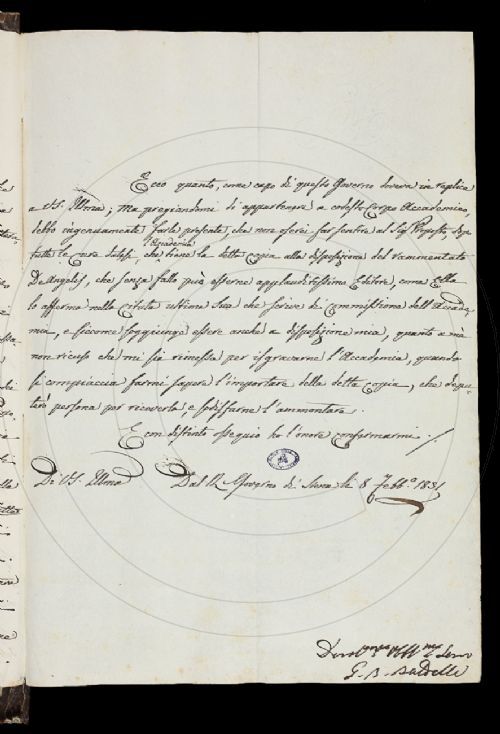 Ecco quanto, come capo di questo Governo doveva in replica
a V.S. Illma; Ma pregiandomi di appartenere a codesto Corpo Accademico,
debbo ingenuamente farle presente, che non oserei far sentire al Sig.
tutte le cure dalla Accademia, che tiene la detta Copia alla disposizione del rammentato
De Angelis, che senza fallo può esserne applauditissimo Editore, come Ella
lo afferma nella citata ultima Sua che scrive di commissione dell'Accade-
mia, e siccome soggiunge essere anche a disposizione mia, quanto a me
non ricuso che mi sia rimessa per isgravarne l'Accademia, quando
si compiaccia farmi sapere l'importare della detta Copia, che depu-
terò persona per riceverla, e sodisfarne l'ammontare.
E con distinto ossequio ho l'onore confermarmi
Di V.S. Illma Dal R. Governo di Siena li 8 Febb.º 1831
G. B. Baldelli